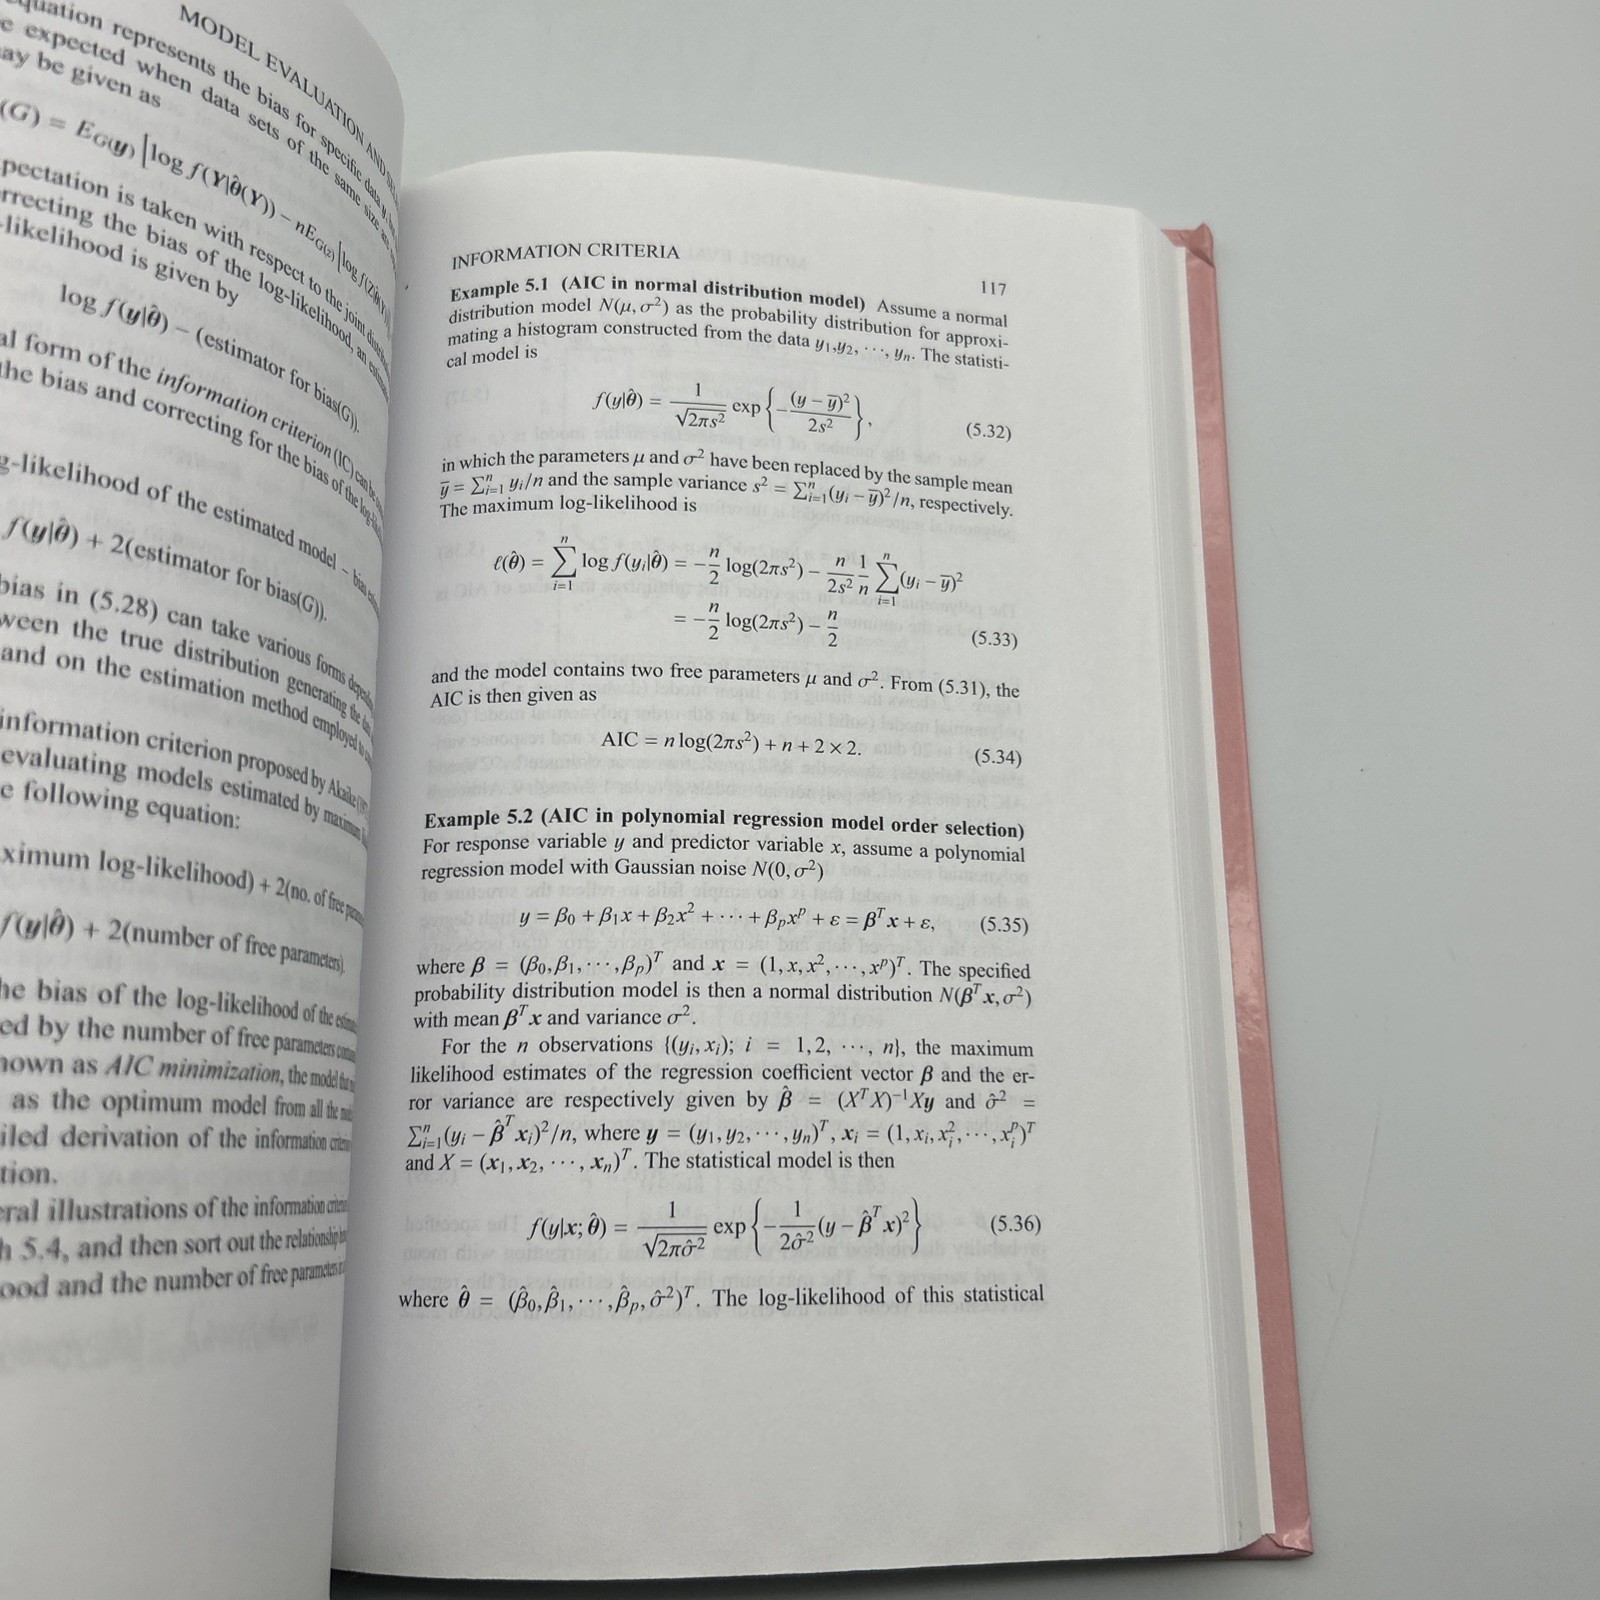 MODEL EVALUATION AND
equation represents the bias for specific data
expected when data sets of the same size are
ay be given as
(G) = E_{G(y)} [log f(Y|θ̂(Y)) − nE_{G(z)} [log f(Z|θ̂(Y))
pectation is taken with respect to the joint
rrecting the bias of the log-likelihood, an
-likelihood is given by
log f(y|θ̂) − (estimator for bias(G)).
al form of the information criterion (IC) can be
the bias and correcting for the bias of the
g-likelihood of the estimated model − bias
f(y|θ̂) + 2(estimator for bias(G)).
bias in (5.28) can take various forms
ween the true distribution generating the
and on the estimation method employed to
information criterion proposed by Akaike
evaluating models estimated by maximum
e following equation:
ximum log-likelihood) + 2(no. of free
f(y|θ̂) + 2(number of free parameters).
he bias of the log-likelihood of the
ed by the number of free parameters
nown as AIC minimization, the model
as the optimum model from all the
iled derivation of the information
tion.
eral illustrations of the information
h 5.4, and then sort out the relationship
ood and the number of free parameters
INFORMATION CRITERIA 117
Example 5.1 (AIC in normal distribution model) Assume a normal
distribution model N(μ, σ²) as the probability distribution for approxi-
mating a histogram constructed from the data y₁,y₂, ···, yₙ. The statisti-
cal model is
f(y|θ̂) = 1/√(2πs²) exp{−(y − ȳ)²/2s²}, (5.32)
in which the parameters μ and σ² have been replaced by the sample mean
ȳ = Σⁿᵢ₌₁ yᵢ/n and the sample variance s² = Σⁿᵢ₌₁(yᵢ − ȳ)²/n, respectively.
The maximum log-likelihood is
ℓ(θ̂) = Σⁿᵢ₌₁ log f(yᵢ|θ̂) = −n/2 log(2πs²) − n/2s² 1/n Σⁿᵢ₌₁(yᵢ − ȳ)²
= −n/2 log(2πs²) − n/2 (5.33)
and the model contains two free parameters μ and σ². From (5.31), the
AIC is then given as
AIC = n log(2πs²) + n + 2 × 2. (5.34)
Example 5.2 (AIC in polynomial regression model order selection)
For response variable y and predictor variable x, assume a polynomial
regression model with Gaussian noise N(0, σ²)
y = β₀ + β₁x + β₂x² + ··· + βₚxᵖ + ε = βᵀx + ε, (5.35)
where β = (β₀, β₁, ···, βₚ)ᵀ and x = (1, x, x², ···, xᵖ)ᵀ. The specified
probability distribution model is then a normal distribution N(βᵀx, σ²)
with mean βᵀx and variance σ².
For the n observations {(yᵢ, xᵢ); i = 1,2, ···, n}, the maximum
likelihood estimates of the regression coefficient vector β and the er-
ror variance are respectively given by β̂ = (XᵀX)⁻¹Xy and σ̂² =
Σⁿᵢ₌₁(yᵢ − β̂ᵀxᵢ)²/n, where y = (y₁, y₂, ···, yₙ)ᵀ, xᵢ = (1, xᵢ, xᵢ², ···, xᵢᵖ)ᵀ
and X = (x₁, x₂, ···, xₙ)ᵀ. The statistical model is then
f(y|x; θ̂) = 1/√(2πσ̂²) exp{−1/2σ̂² (y − β̂ᵀx)²} (5.36)
where θ̂ = (β̂₀, β̂₁, ···, β̂ₚ, σ̂²)ᵀ. The log-likelihood of this statistical